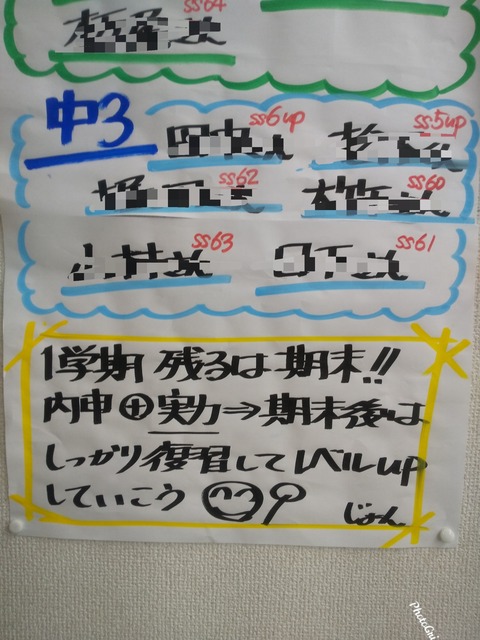 ss64
中3
ss6up
ss5up
ss62
ss60
ss63
ss61
1学期 残るは期末!!
内申⊕実力⇒期末後は
しっかり復習してレベルup
していこう
じょん
PhotoGni